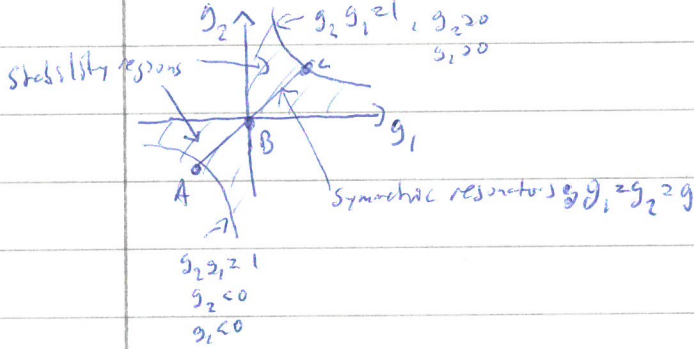 g₂
g₂ g₁ = 1 , g₂ > 0
g₁ > 0
Stability regions
g₁
B
A
Symmetric resonators g₁ = g₂ = g
g₂ g₁ = 1
g₂ < 0
g₁ < 0